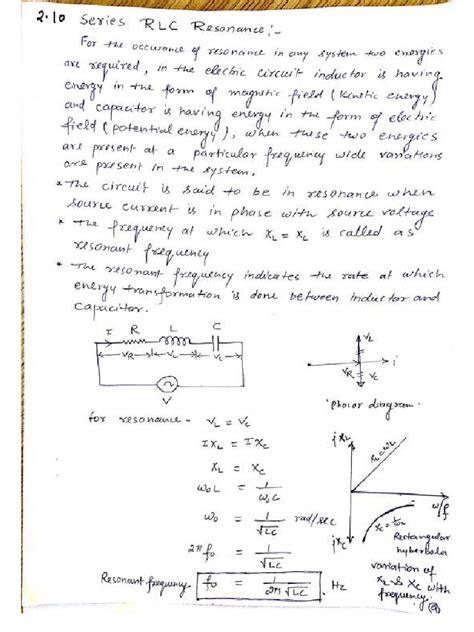 2.10 Series RLC Resonance:-
For the occurance of resonance in any system two energies
are required, in the electric circuit inductor is having
energy in the form of magnetic field (Kinetic energy)
and capacitor is having energy in the form of electric
field (potential energy), when these two energies
are present at a particular frequency wide variations
are present in the system.
* The circuit is said to be in resonance when
source current is in phase with source voltage
* The frequency at which XL = XC is called as
resonant frequency
* The resonant frequency indicates the rate at which
energy transformation is done between inductor and
capacitor.
I R L C
VR VL VC
V
VL
i
VR VC
Phasor diagram.
for resonance - VL = VC
IXL = IXC
XL = XC
ω0L = 1/ω0C
ω0 = 1/√LC rad/sec
2πf0 = 1/√LC
Resonant frequency. f0 = 1/2π√LC . Hz
jXL
XL=ωL
ω/f
jXC
Rectangular
hyberbola
variation of
XL & XC with
frequency.